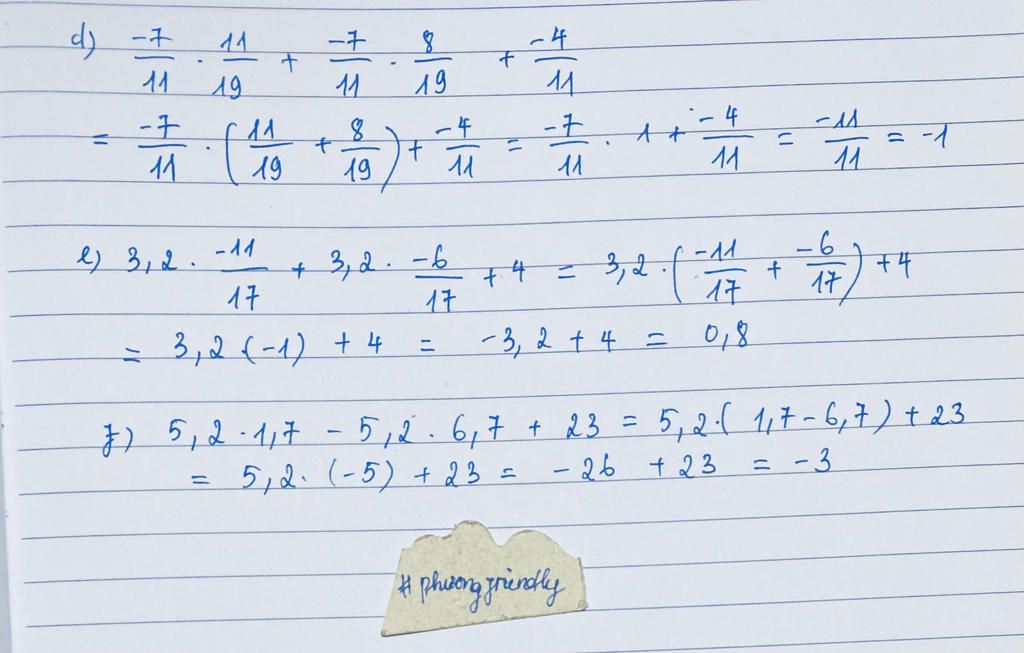 d) -7/11 . 11/19 + -7/11 . 8/19 + -4/11
= -7/11 . (11/19 + 8/19) + -4/11 = -7/11 . 1 + -4/11 = -11/11 = -1
e) 3,2 . -11/17 + 3,2 . -6/17 + 4 = 3,2 . (-11/17 + -6/17) + 4
= 3,2 (-1) + 4 = -3,2 + 4 = 0,8
f) 5,2 . 1,7 - 5,2 . 6,7 + 23 = 5,2 . (1,7 - 6,7) + 23
= 5,2 . (-5) + 23 = -26 + 23 = -3
# phuongfriendly